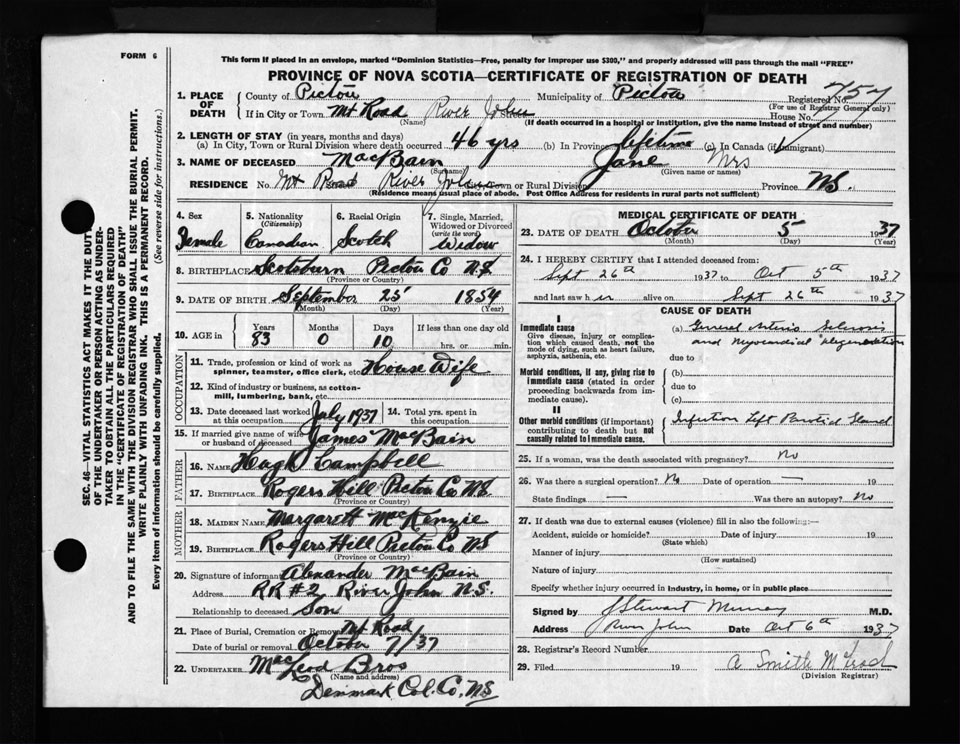 FORM 6
This form if placed in an envelope, marked "Dominion Statistics—Free, penalty for improper use $300," and properly addressed will pass through the mail "FREE"
PROVINCE OF NOVA SCOTIA—CERTIFICATE OF REGISTRATION OF DEATH
SEC. 46—VITAL STATISTICS ACT MAKES IT THE DUTY
OF THE UNDERTAKER OR PERSON ACTING AS UNDER-
TAKER TO OBTAIN ALL THE PARTICULARS REQUIRED
IN THE "CERTIFICATE OF REGISTRATION OF DEATH"
AND TO FILE THE SAME WITH THE DIVISION REGISTRAR WHO SHALL ISSUE THE BURIAL PERMIT.
WRITE PLAINLY WITH UNFADING INK. THIS IS A PERMANENT RECORD.
Every item of information should be carefully supplied. (See reverse side for instructions.)
1. PLACE OF DEATH County of Pictou Municipality of Pictou Registered No. 757
(For use of Registrar General only)
If in City or Town Mt Road River John Street House No.
(Name) (If death occurred in a hospital or institution, give the name instead of street and number)
2. LENGTH OF STAY (in years, months and days)
(a) In City, Town or Rural Division where death occurred 46 yrs (b) In Province lifetime (c) In Canada (if immigrant)
3. NAME OF DECEASED MacBain Jane Mrs
(Surname) (Given name or names)
RESIDENCE No. Mt Road River John Town or Rural Division Province NS.
(Residence means usual place of abode. Post Office Address for residents in rural parts not sufficient)
4. Sex Female
5. Nationality (Citizenship) Canadian
6. Racial Origin Scotch
7. Single, Married, Widowed or Divorced (write the word) Widow
8. BIRTHPLACE Scotsburn Pictou Co NS
(Province or Country)
9. DATE OF BIRTH September 25 1854
(Month) (Day) (Year)
10. AGE in Years 83 Months 0 Days 10 If less than one day old hrs. or min.
OCCUPATION
11. Trade, profession or kind of work as spinner, teamster, office clerk, etc. House Wife
12. Kind of industry or business, as cotton-mill, lumbering, bank, etc.
13. Date deceased last worked at this occupation July 1937 14. Total yrs. spent in this occupation
15. If married give name of wife or husband of deceased James MacBain
FATHER
16. NAME Hugh Campbell
17. BIRTHPLACE Rogers Hill Pictou Co NS
(Province or Country)
MOTHER
18. MAIDEN NAME Margarett MacKenzie
19. BIRTHPLACE Rogers Hill Pictou Co NS
(Province or Country)
20. Signature of informant Alexander MacBain
Address RR #2 River John N.S.
Relationship to deceased Son
21. Place of Burial, Cremation or Removal Mt Road
Date of burial or removal October 7/37
22. UNDERTAKER MacLeod Bros
(Name and address)
Denmark Col. Co. NS
MEDICAL CERTIFICATE OF DEATH
23. DATE OF DEATH October 5 1937
(Month) (Day) (Year)
24. I HEREBY CERTIFY that I attended deceased from:
Sept 26th 1937 to Oct 5th 1937
and last saw her alive on Sept 26th 1937
CAUSE OF DEATH
I
Immediate cause
Give disease, injury or complication which caused death, not the mode of dying, such as heart failure, asphyxia, asthenia, etc.
(a) General Arterio Sclerosis
and Myocardial degeneration
due to
Morbid conditions, if any, giving rise to immediate cause (stated in order proceeding backwards from immediate cause).
(b)
due to
(c)
II
Other morbid conditions (if important) contributing to death but not causally related to immediate cause.
Infection Left Parotid Gland
25. If a woman, was the death associated with pregnancy? No
26. Was there a surgical operation? No Date of operation — 19
State findings — Was there an autopsy? No
27. If death was due to external causes (violence) fill in also the following:—
Accident, suicide or homicide? Date of injury 19
(State which)
Manner of injury
(How sustained)
Nature of injury
Specify whether injury occurred in industry, in home, or in public place
Signed by J Stewart Murray M.D.
Address River John Date Oct 6th 1937
28. Registrar's Record Number
29. Filed 19 A Smith McLeod
(Division Registrar)